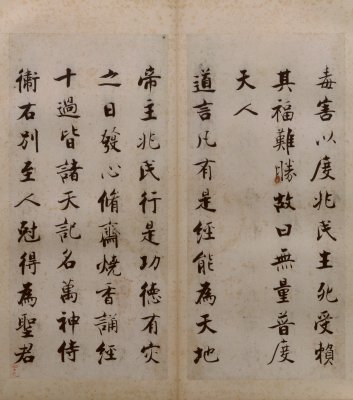 毒害以度兆民生死受賴
其福難勝故曰無量普度
天人
道言凡有是經能為天地
帝主兆民行是功德有災
之日發心脩齋燒香誦經
十過皆諸天記名萬神侍
衛右別至人尅得為聖君